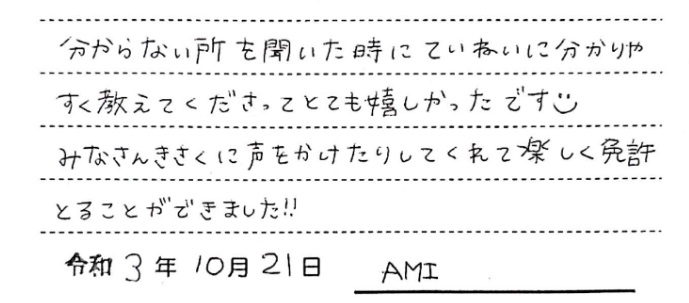 分からない所を聞いた時にていねいに分かりや
すく教えてくださってとても嬉しかったです☺
みなさんきさくに声をかけたりしてくれて楽しく免許
とることができました!!
令和3年10月21日 AMI